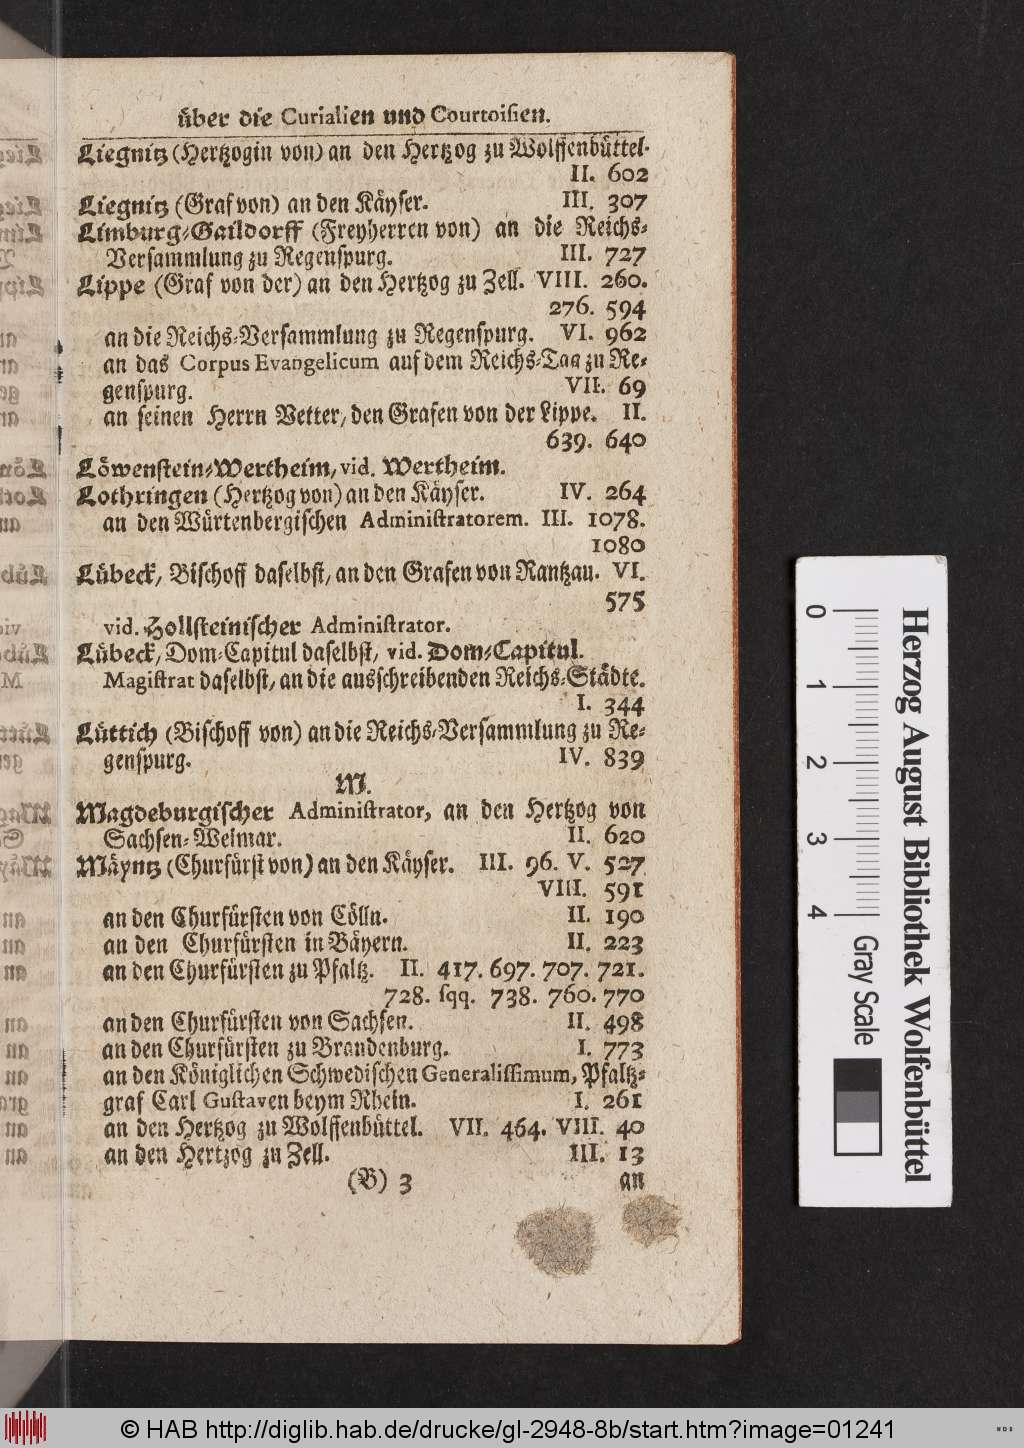 über die Curialien und Courtoisien.
Liegnitz (Hertzogin von) an den Hertzog zu Wolffenbüttel.
II. 602
Liegnitz (Graf von) an den Käyser. III. 307
Limburg-Gaildorff (Freyherren von) an die Reichs-
Versammlung zu Regenspurg. III. 727
Lippe (Graf von der) an den Hertzog zu Zell. VIII. 260.
276. 594
an die Reichs-Versammlung zu Regenspurg. VI. 962
an das Corpus Evangelicum auf dem Reichs-Tag zu Re-
genspurg. VII. 69
an seinen Herrn Vetter, den Grafen von der Lippe. II.
639. 640
Löwenstein-Wertheim, vid. Wertheim.
Lothringen (Hertzog von) an den Käyser. IV. 264
an den Würtenbergischen Administratorem. III. 1078.
1080
Lübeck, Bischoff daselbst, an den Grafen von Rantzau. VI.
575
vid. Hollsteinischer Administrator.
Lübeck, Dom-Capitul daselbst, vid. Dom-Capitul.
Magistrat daselbst, an die ausschreibenden Reichs-Städte.
I. 344
Lüttich (Bischoff von) an die Reichs-Versammlung zu Re-
genspurg. IV. 839
M.
Magdeburgischer Administrator, an den Hertzog von
Sachsen-Weimar. II. 620
Mäyntz (Churfürst von) an den Käyser. III. 96. V. 527
VIII. 591
an den Churfürsten von Cölln. II. 190
an den Churfürsten in Bäyern. II. 223
an den Churfürsten zu Pfaltz. II. 417. 697. 707. 721.
728. sqq. 738. 760. 770
an den Churfürsten von Sachsen. II. 498
an den Churfürsten zu Brandenburg. I. 773
an den Königlichen Schwedischen Generalissimum, Pfaltz-
graf Carl Gustaven beym Rhein. I. 261
an den Hertzog zu Wolffenbüttel. VII. 464. VIII. 40
an den Hertzog zu Zell. III. 13
(B) 3 an
Herzog August Bibliothek Wolfenbüttel
0 1 2 3 4 Gray Scale
© HAB http://diglib.hab.de/drucke/gl-2948-8b/start.htm?image=01241